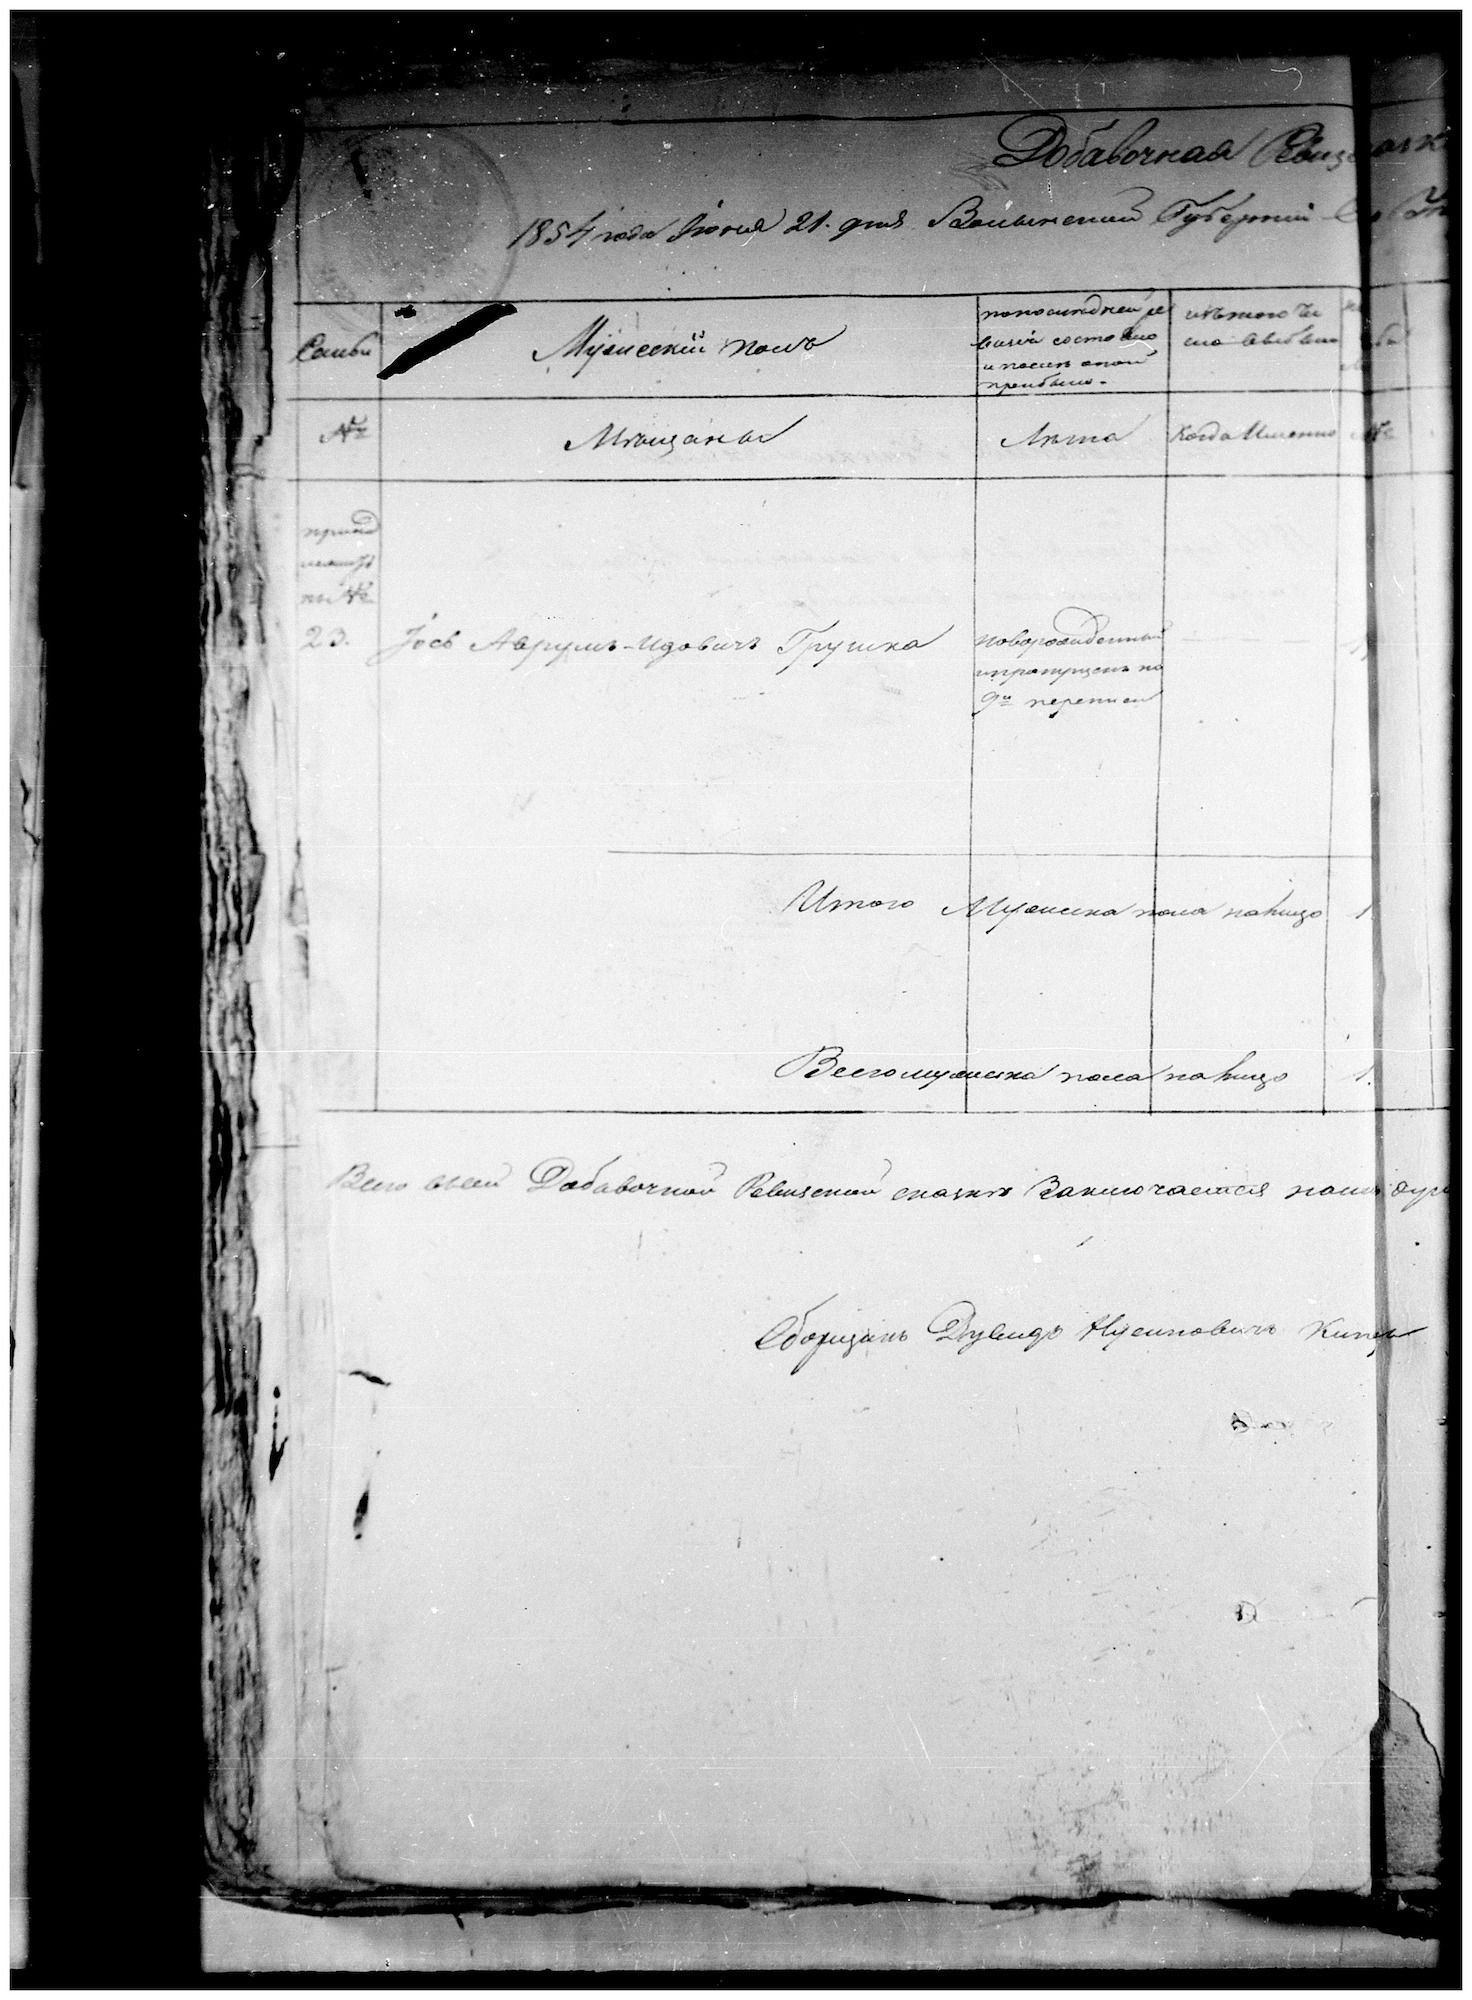 Добавочная Ревизс
1854 года Июня 21. дня Волынской Губернии
Семьи
Мужескій полъ
по последней ре
визіи состояло
и после оной
прибыло.
изъ того чи
сла выбыло
№
Мещаны
Лета
Когда Именно
№
принад
лежитъ
къ №
23. Іось Аврумъ-Идовичъ Грушка
новорожденный
и пропущенъ по
9й переписи
1
Итого Мужеска пола налицо 1
Всего мужеска пола налицо 1.
Всего въсей Добавочной Ревизской сказке Заключается
Сборщикъ Дувидъ